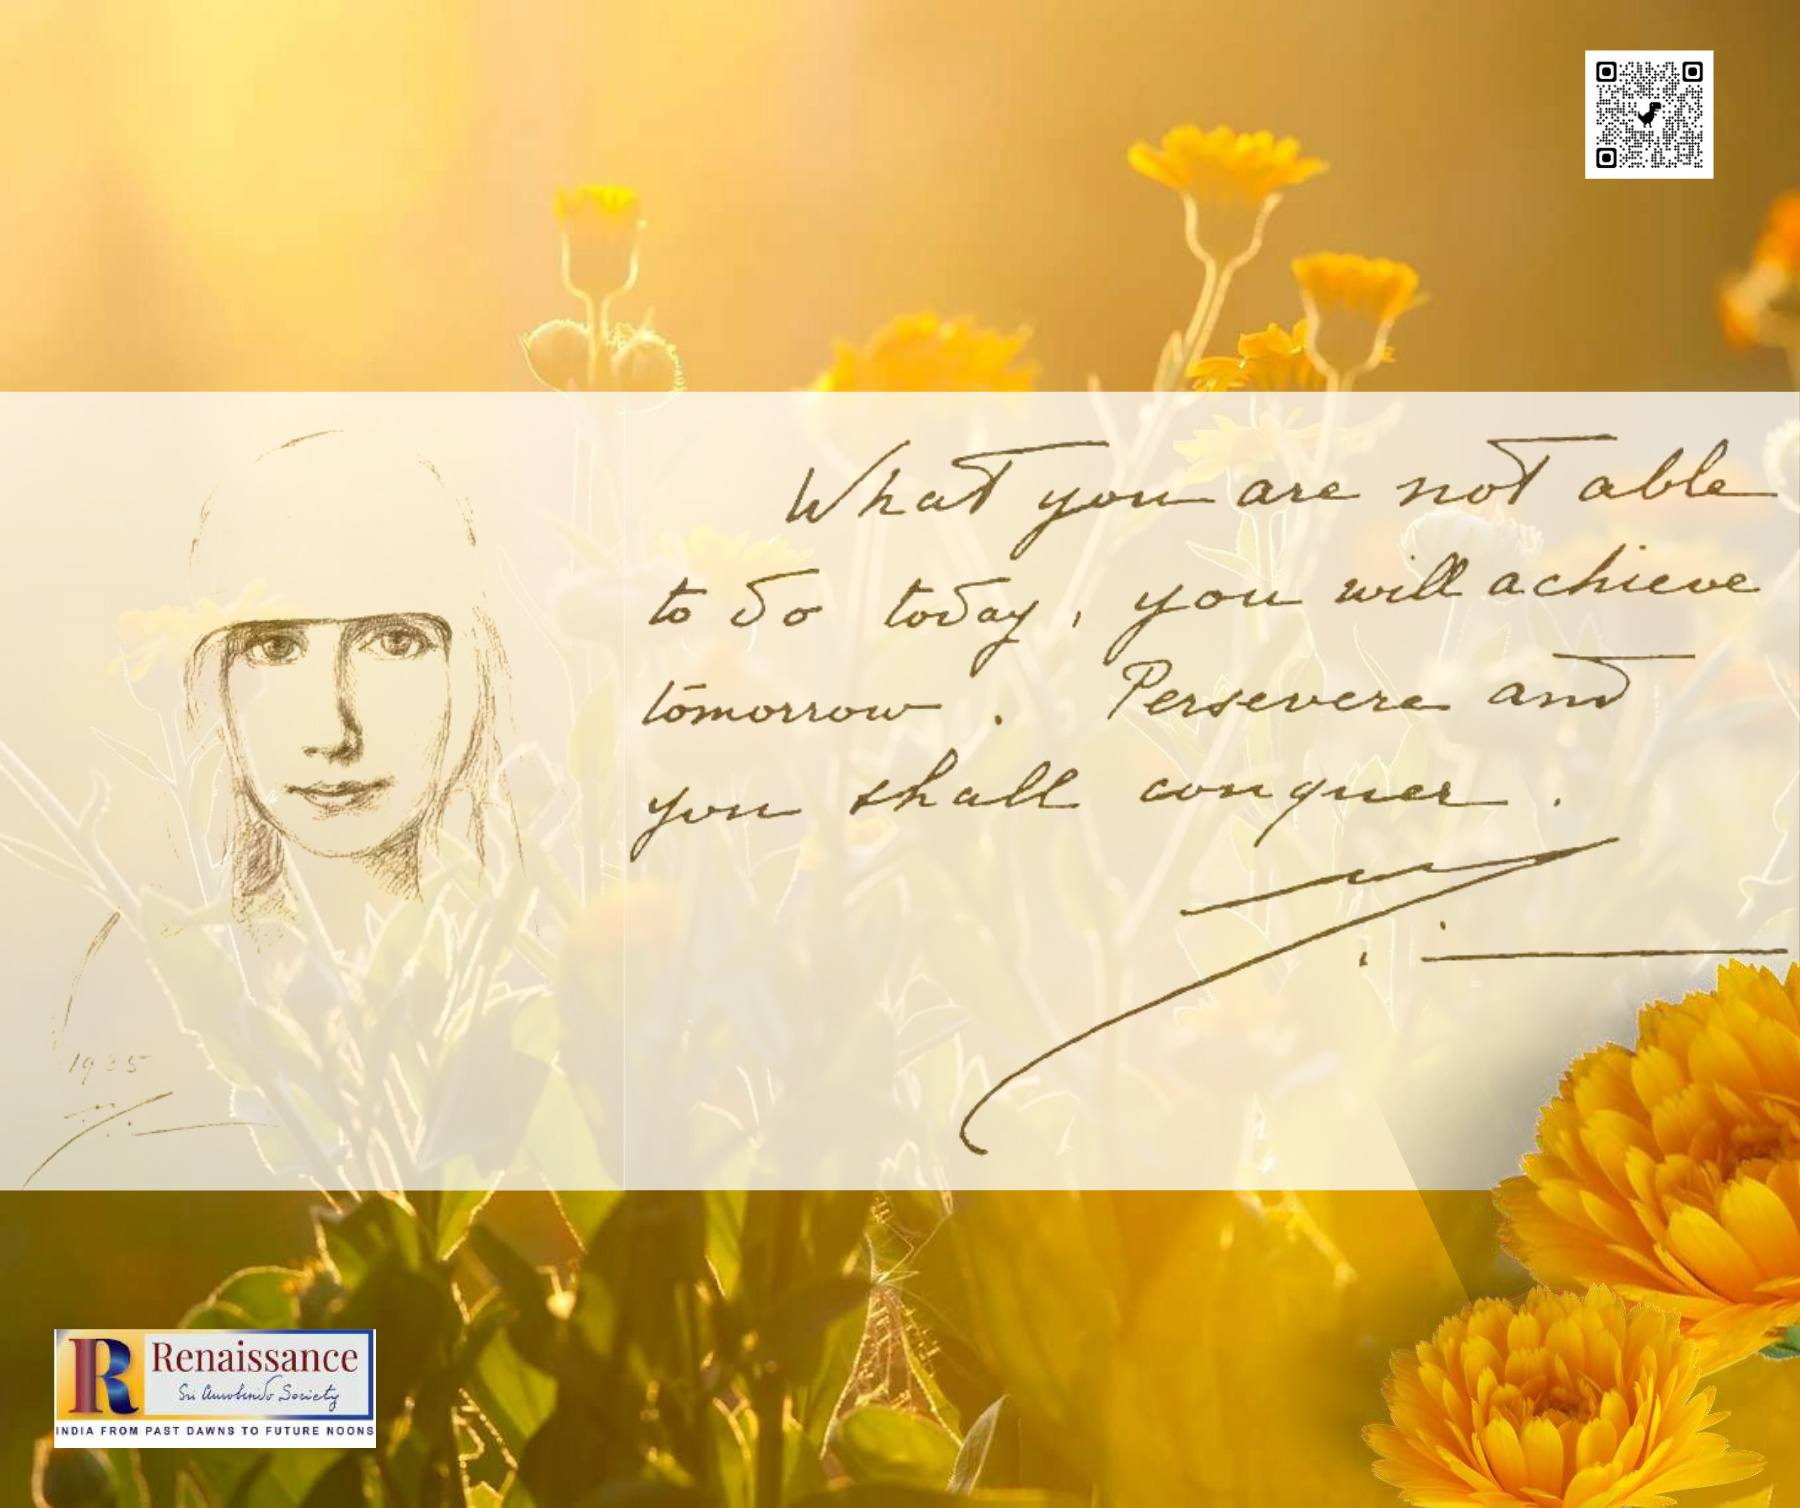 What you are not able
to do today, you will achieve
tomorrow. Persevere and
you shall conquer.
1935
Renaissance
Sri Aurobindo Society
INDIA FROM PAST DAWNS TO FUTURE NOONS